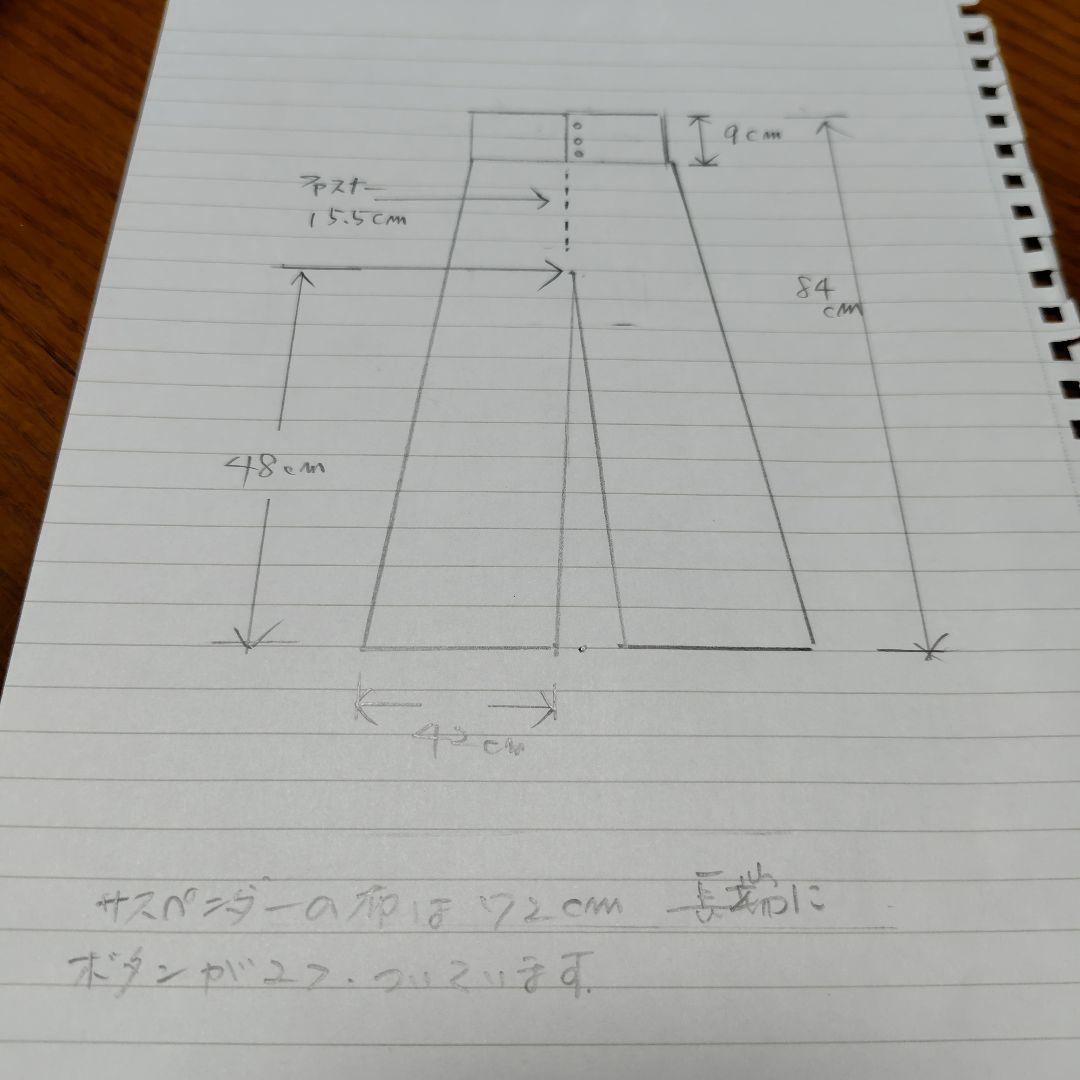 9cm
ファスナー
15.5cm
84
cm
48cm
cm
サスペンダーの布は 72cm 端に
ボタンが2つ.ついています.